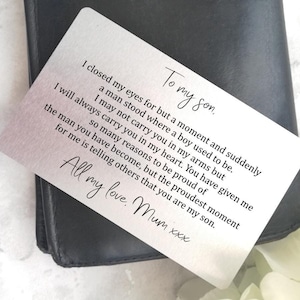 To my son,
I closed my eyes for but a moment and suddenly
a man stood where a boy used to be.
I may not carry you in my arms but
I will always carry you in my heart. You have given me
so many reasons to be proud of
the man you have become, but the proudest moment
for me is telling others that you are my son.
All my love, Mum xxx